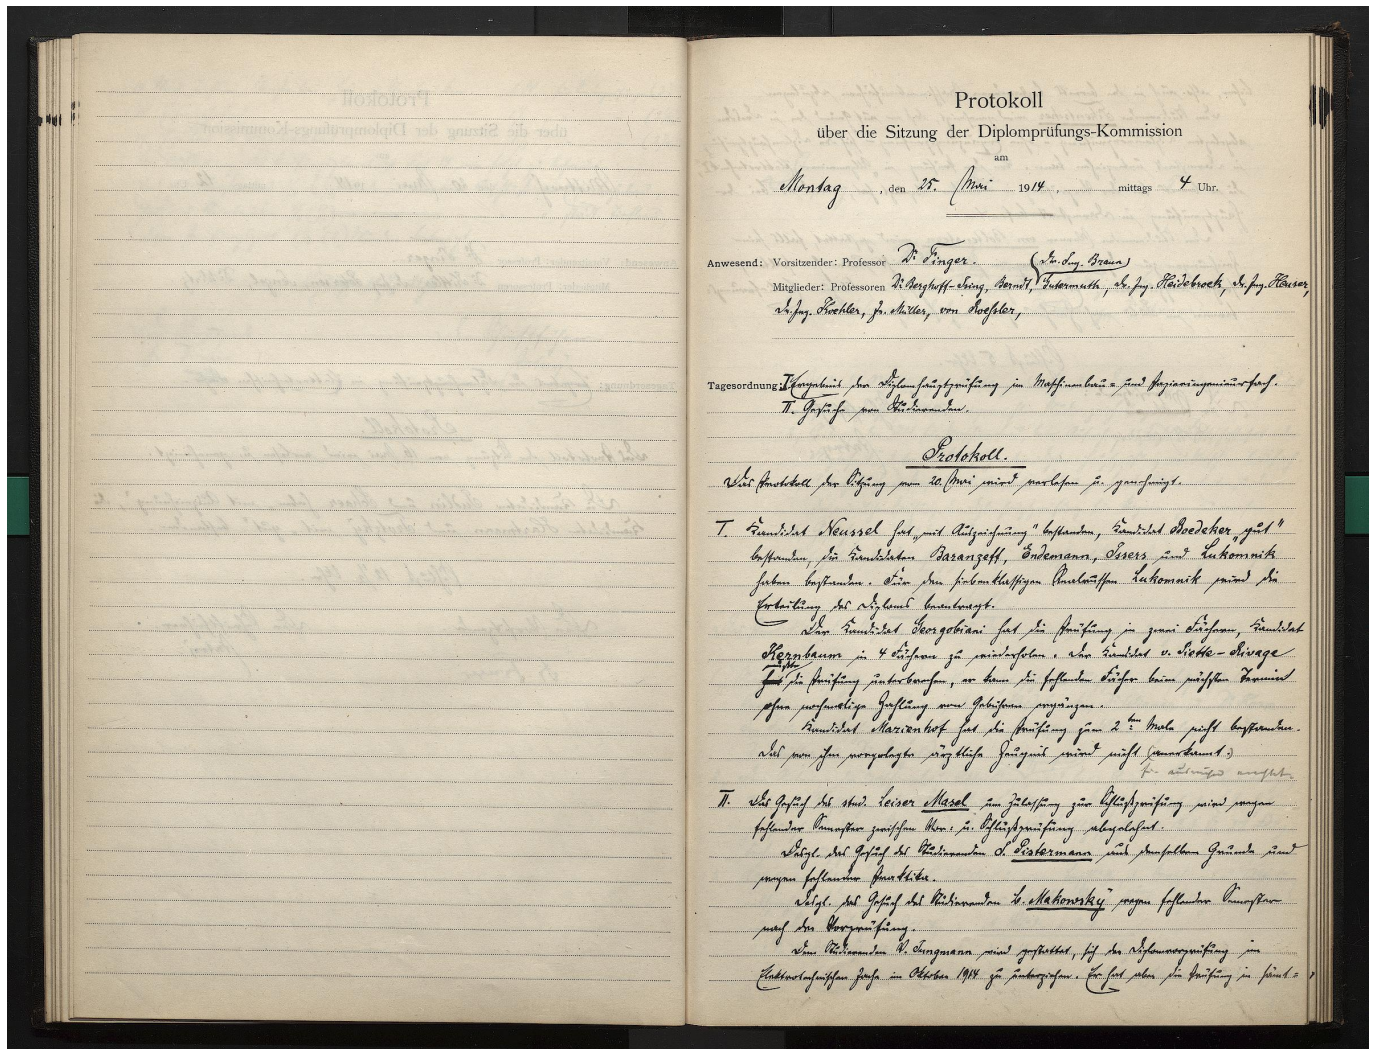 Protokoll
über die Sitzung der Diplomprüfungs-Kommission
am
Montag, den 25. Mai 1914, mittags 4 Uhr.
Anwesend: Vorsitzender: Professor Dr Finger. (Dr. Ing. Braun)
Mitglieder: Professoren Dr Berghoff-Ising, Berndt, Gutermuth, Dr. Ing. Heidebroek, Dr. Ing. Heuser,
Dr. Ing. Koehler, Dr. Müller, von Roessler,
Tagesordnung: I. Ergebnis der Diplomhauptprüfung im Maschinenbau- und Papieringenieurfach.
II. Gesuche von Studierenden.
Protokoll.
Das Protokoll der Sitzung vom 20. Mai wird verlesen u. genehmigt.
I. Kandidat Neussel hat "mit Auszeichnung" bestanden, Kandidat Boedeker "gut"
bestanden, die Kandidaten Baranzeff, Endemann, Issers und Lukomnik
haben bestanden. Für den siebenklassigen Realrussen Lukomnik wird die
Erteilung des Diploms beantragt.
Der Kandidat Georgobiani hat die Prüfung in zwei Fächern, Kandidat
Kernbaum in 4 Fächern zu wiederholen. Der Kandidat v. Piette-Rivage
mußte
hat die Prüfung unterbrechen, er kann die fehlenden Fächer beim nächsten Termin
ohne nochmalige Zahlung von Gebühren ergänzen.
Kandidat Marienhof hat die Prüfung zum 2ten Male nicht bestanden.
Das von ihm vorgelegte ärztliche Zeugnis wird nicht (anerkannt.)
für ausreichend erachtet
II. Das Gesuch des stud. Leiser Masel um Zulassung zur Schlußprüfung wird wegen
fehlender Semester zwischen Vor- u. Schlußprüfung abgelehnt.
Desgl. das Gesuch des Studierenden S. Pistermann aus demselben Grunde und
wegen fehlender Praktika.
Desgl. das Gesuch des Studierenden B. Makowsky wegen fehlender Semester
nach der Vorprüfung.
Dem Studierenden V. Jungmann wird gestattet, sich der Diplomvorprüfung im
Elektrotechnischen Fache im Oktober 1914 zu unterziehen. Er hat aber die Prüfung in sämt-